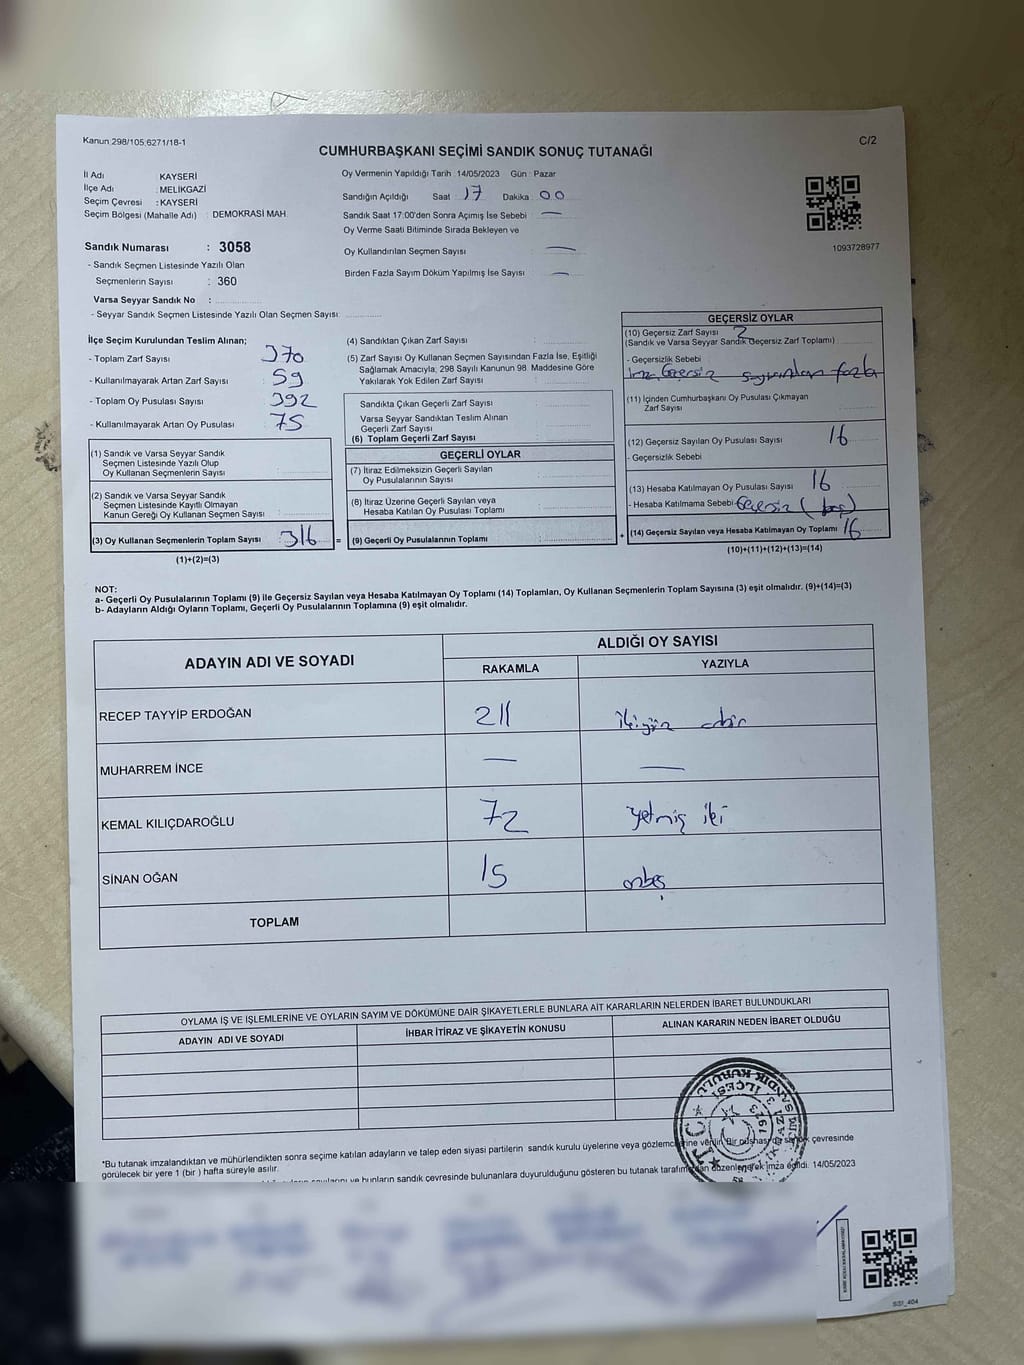 Kanun 298/105;6271/18-1
C/2
CUMHURBAŞKANI SEÇİMİ SANDIK SONUÇ TUTANAĞI
İl Adı : KAYSERİ
İlçe Adı : MELİKGAZİ
Seçim Çevresi : KAYSERİ
Seçim Bölgesi (Mahalle Adı) : DEMOKRASİ MAH.
Sandık Numarası : 3058
- Sandık Seçmen Listesinde Yazılı Olan
Seçmenlerin Sayısı : 360
Varsa Seyyar Sandık No :
- Seyyar Sandık Seçmen Listesinde Yazılı Olan Seçmen Sayısı:
Oy Vermenin Yapıldığı Tarih :14/05/2023 Gün : Pazar
Sandığın Açıldığı Saat 17 Dakika 00
Sandık Saat 17:00'den Sonra Açımış İse Sebebi —
Oy Verme Saati Bitiminde Sırada Bekleyen ve
Oy Kullandırılan Seçmen Sayısı —
Birden Fazla Sayım Döküm Yapılmış İse Sayısı —
1093728977
İlçe Seçim Kurulundan Teslim Alınan;
- Toplam Zarf Sayısı 370
- Kullanılmayarak Artan Zarf Sayısı 59
- Toplam Oy Pusulası Sayısı 392
- Kullanılmayarak Artan Oy Pusulası 75
(1) Sandık ve Varsa Seyyar Sandık
Seçmen Listesinde Yazılı Olup
Oy Kullanan Seçmenlerin Sayısı
(2) Sandık ve Varsa Seyyar Sandık
Seçmen Listesinde Kayıtlı Olmayan
Kanun Gereği Oy Kullanan Seçmen Sayısı
(3) Oy Kullanan Seçmenlerin Toplam Sayısı 316 =
(1)+(2)=(3)
(4) Sandıktan Çıkan Zarf Sayısı
(5) Zarf Sayısı Oy Kullanan Seçmen Sayısından Fazla İse, Eşitliği
Sağlamak Amacıyla, 298 Sayılı Kanunun 98. Maddesine Göre
Yakılarak Yok Edilen Zarf Sayısı
Sandıkta Çıkan Geçerli Zarf Sayısı
Varsa Seyyar Sandıktan Teslim Alınan
Geçerli Zarf Sayısı
(6) Toplam Geçerli Zarf Sayısı
GEÇERLİ OYLAR
(7) İtiraz Edilmeksizin Geçerli Sayılan
Oy Pusulalarının Sayısı
(8) İtiraz Üzerine Geçerli Sayılan veya
Hesaba Katılan Oy Pusulası Toplamı
(9) Geçerli Oy Pusulalarının Toplamı +
GEÇERSİZ OYLAR
(10) Geçersiz Zarf Sayısı 2
(Sandık ve Varsa Seyyar Sandık Geçersiz Zarf Toplamı)
- Geçersizlik Sebebi
Geçersiz sayımdan fazla
(11) İçinden Cumhurbaşkanı Oy Pusulası Çıkmayan
Zarf Sayısı
(12) Geçersiz Sayılan Oy Pusulası Sayısı 16
- Geçersizlik Sebebi
(13) Hesaba Katılmayan Oy Pusulası Sayısı 16
- Hesaba Katılmama Sebebi Geçersiz (boş)
(14) Geçersiz Sayılan veya Hesaba Katılmayan Oy Toplamı 16
(10)+(11)+(12)+(13)=(14)
NOT:
a- Geçerli Oy Pusulalarının Toplamı (9) ile Geçersiz Sayılan veya Hesaba Katılmayan Oy Toplamı (14) Toplamları, Oy Kullanan Seçmenlerin Toplam Sayısına (3) eşit olmalıdır. (9)+(14)=(3)
b- Adayların Aldığı Oyların Toplamı, Geçerli Oy Pusulalarının Toplamına (9) eşit olmalıdır.
ADAYIN ADI VE SOYADI ALDIĞI OY SAYISI
RAKAMLA YAZIYLA
RECEP TAYYİP ERDOĞAN 211 ikiyüz onbir
MUHARREM İNCE — —
KEMAL KILIÇDAROĞLU 72 yetmiş iki
SİNAN OĞAN 15 onbeş
TOPLAM
OYLAMA İŞ VE İŞLEMLERİNE VE OYLARIN SAYIM VE DÖKÜMÜNE DAİR ŞİKAYETLERLE BUNLARA AİT KARARLARIN NELERDEN İBARET BULUNDUKLARI
ADAYIN ADI VE SOYADI İHBAR İTİRAZ VE ŞİKAYETİN KONUSU ALINAN KARARIN NEDEN İBARET OLDUĞU
*Bu tutanak imzalandıktan ve mühürlendikten sonra seçime katılan adayların ve talep eden siyasi partilerin sandık kurulu üyelerine veya gözlemcilerine verilir. Bir nüshası da sandık çevresinde
görülecek bir yere 1 (bir ) hafta süreyle asılır.
bunların sandık çevresinde bulunanlara duyurulduğunu gösteren bu tutanak tarafımızdan düzenlenerek imza edildi. 14/05/2023
T.C.
İLÇESİ
SANDIK KURULU
SS1_404